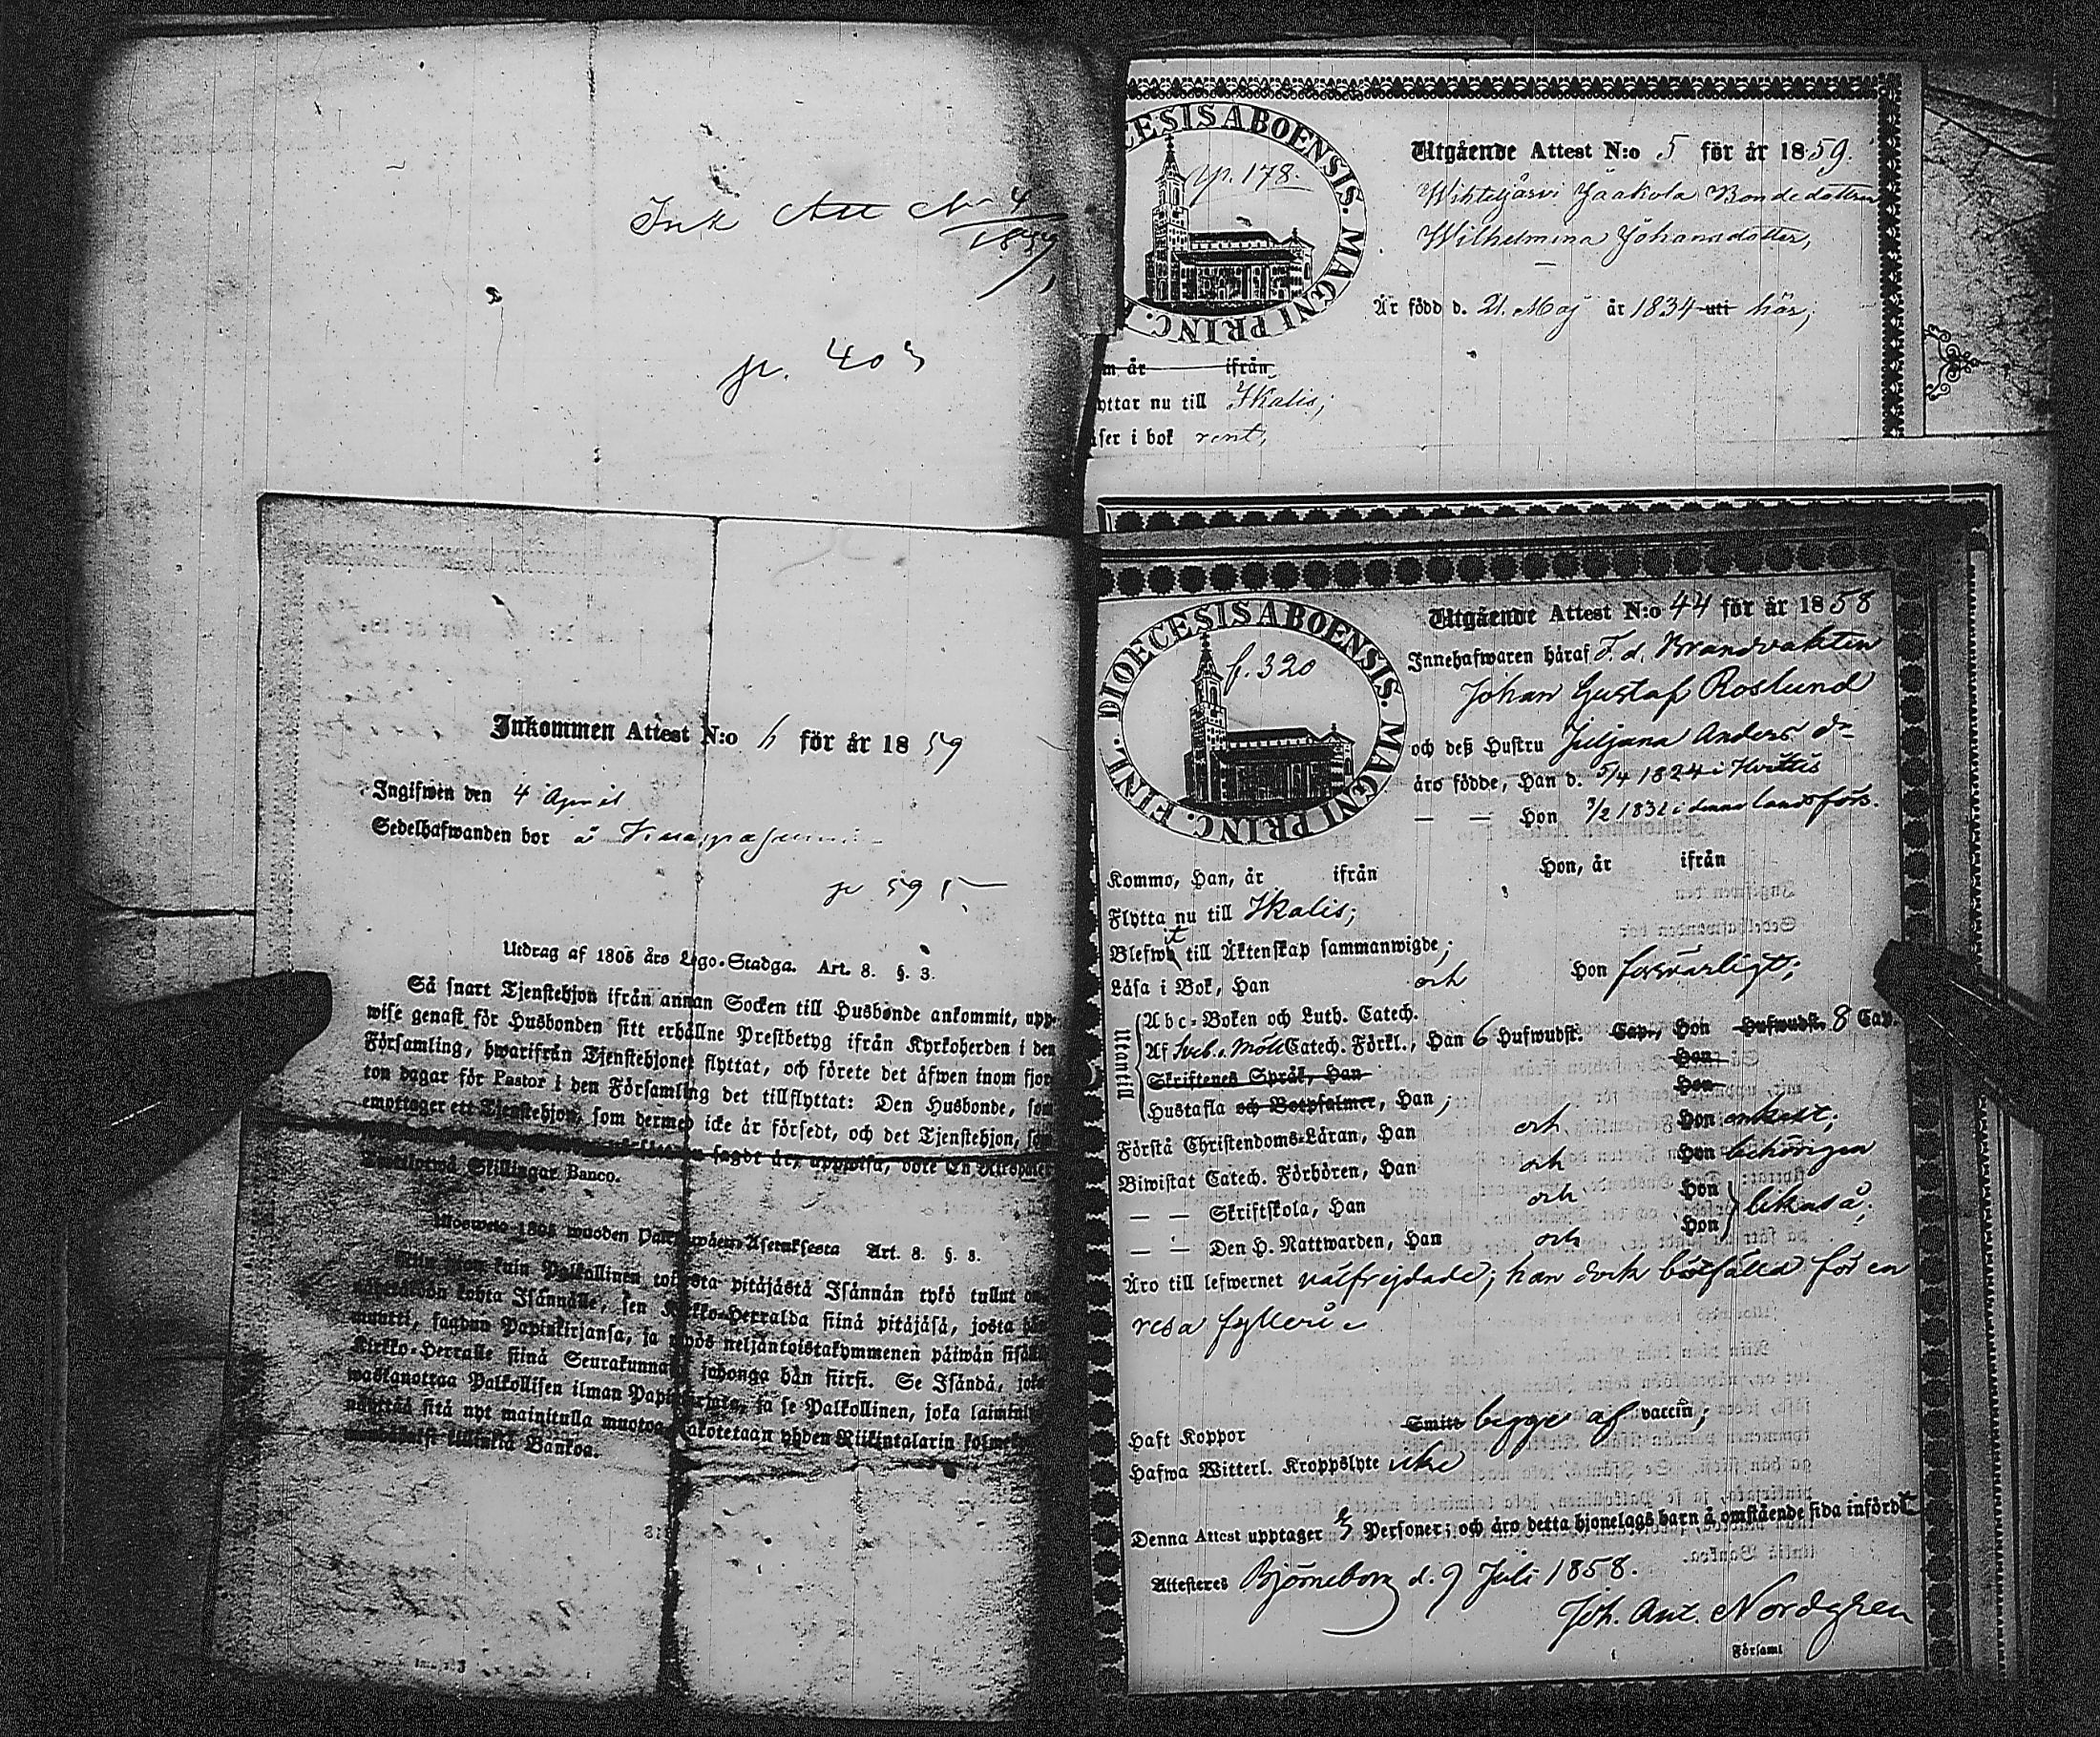 Ink Att No 4
1859
p. 403
Inkommen Attest N:o 6 för år 1859
Ingifwen den 4 April
Sedelhafwanden bor å
p 595
Utdrag af 1805 års Lego-Stadga. Art. 8. §. 3.
Så snart Tjenstehjon ifrån annan Socken till Husbonde ankommit, upp-
wise genast för Husbonden sitt erhållne Prestbetyg ifrån Kyrkoherden i den
Församling, hwarifrån Tjenstehjonet flyttat, och förete det äfwen inom fjor-
ton dagar för Pastor i den Församling det tillflyttat: Den Husbonde, som
emottager ett Tjenstehjon, som dermed icke är försedt, och det Tjenstehjon, som
sagdt är, uppwisa, böte En Riksdaler
Skillingar Banco.
1805 wuoden Palkkawäen Asetuksesta Art. 8. §. 3.
Niin pian kuin Palkollinen toisesta pitäjästä Isännän tykö tullut on,
kohta Isännälle, sen Kirkko-Herralda siinä pitäjäsä, josta hän
muutti, saadun Papinkirjansa, ja myös neljäntoistakymmenen päiwän sisällä
Kirkko-Herralle siinä Seurakunnasa johonga hän siirsi. Se Isändä, joka
wastanottaa Palkollisen ilman Papinkirjata, ja se Palkollinen, joka laiminlyö
näyttää sitä nyt mainitulla muotoa, sakotetaan yhden Riikintalarin kolmella
killinkiä Bankoa.
DIOECESIS ABOENSIS. MAGNI PRINC.
p. 178.
Utgående Attest N:o 5 för år 1859.
Wihteljärvi Jaakola Bondedottren
Wilhelmina Johansdotter,
Är född d. 21. Maj år 1834 uti här;
m år ifrån
yttar nu till Ikalis;
äser i bok rent,
DIOECESIS ABOENSIS. MAGNI PRINC. FINL.
f. 320
Utgående Attest N:o 44 för år 1858
Innehafwaren häraf F. d. Brandvakten
Johan Gustaf Roslund
och deß Hustru Juljana Anders dr
äro födde, Han d. 5/4 1824 i Hvittis
— — Hon 3/2 1832 i denna landsförs.
Kommo, Han, år ifrån Hon, år ifrån
Flytta nu till Ikalis;
Blefwit till Äktenskap sammanwigde;
Läsa i Bok, Han och Hon försvarligt;
Utantill
Abc-Boken och Luth. Catech.
Af Sveb. o. Möll Catech. Förkl., Han 6 Hufwudst. Cap., Hon Hufwudst. 8 Cap.
Skriftenes Språk, Han Hon
Hustafla och Botpsalmer, Han; Hon
Förstå Christendoms-Läran, Han och Hon enkelt;
Biwistat Catech. Förhören, Han och Hon behörigen
— — Skriftskola, Han och Hon likaså;
— — Den H. Nattwarden, Han och Hon
Äro till lefwernet välfrejdade; han dock bötfälld för en
resa fylleri.
Haft Koppor Smitt begge af vaccin;
Hafwa Witterl. Kroppslyte icke
Denna Attest upptager 3 Personer; och äro detta hjonelags barn å omstående sida införde
Attesteres Björneborg d. 9 Juli 1858.
Joh. Ant. Nordgren
Församl